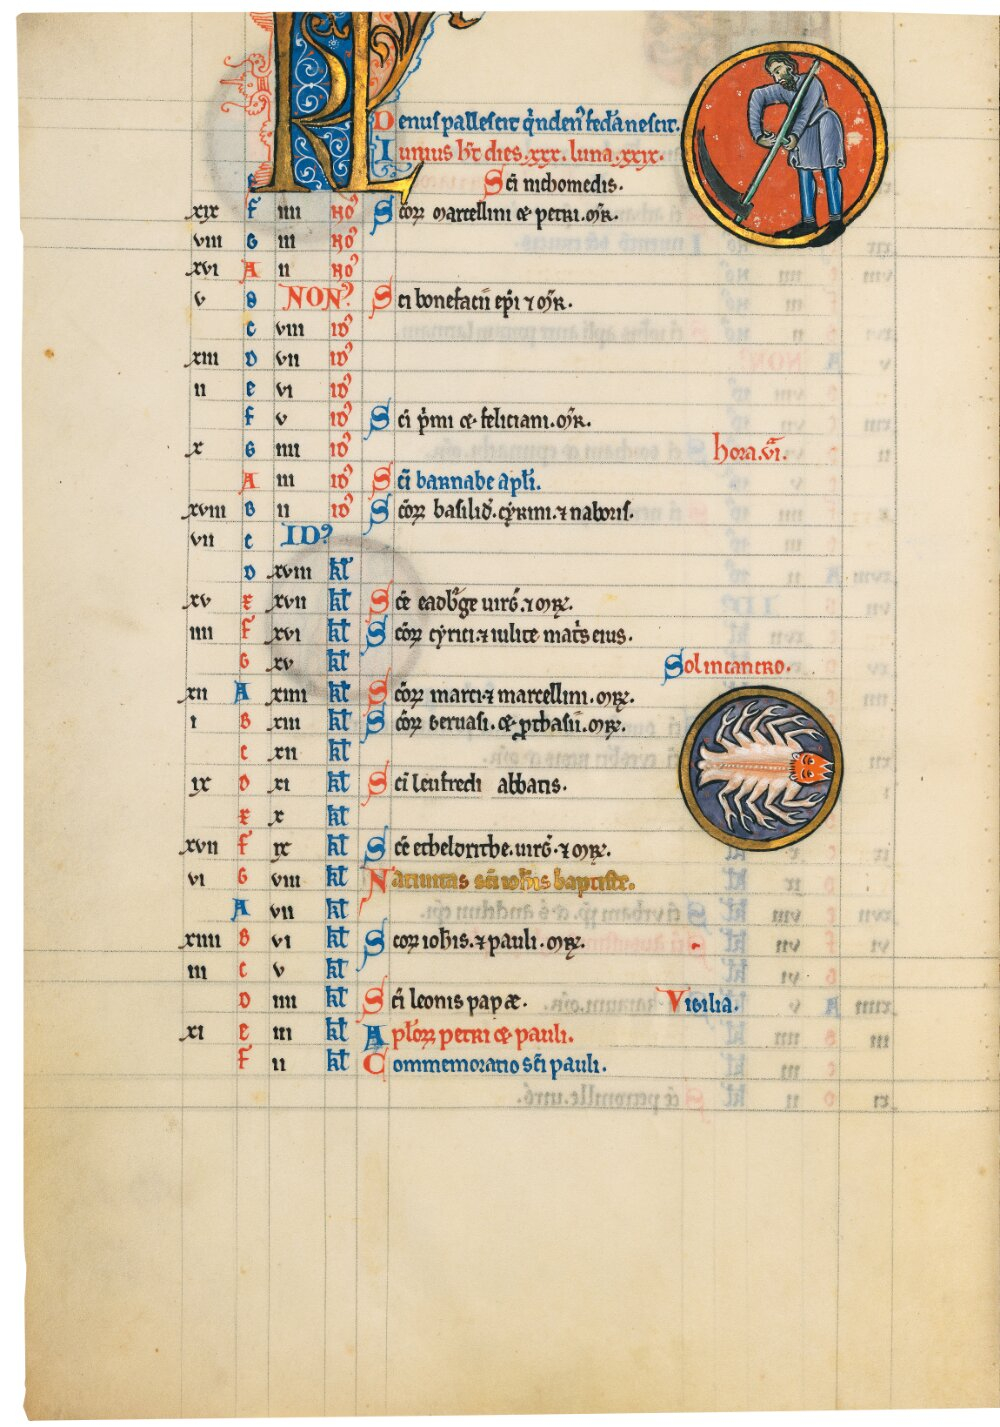 KL
Denus pallescit q'nden' fed'a nescit.
Iunius h't dies .xxx. luna .xxix.
Sci nichomedis.
xix f iiii NO' Scorꝝ marcellini & petri. mr̄.
viii G iii NO'
xvi A ii NO'
v B NON' Sci bonefacii ep̄i ⁊ mr̄.
c viii ID'
xiii D vii ID'
ii e vi ID'
f v ID' Sci p'mi & feliciani. mr̄.
x G iiii ID' hora .vi.
A iii ID' Sci barnabe apl'i.
xviii B ii ID' Scorꝝ basilid'. cyrini. ⁊ naboris.
vii c ID'
D xviii kl'
xv E xvii kl' Sce eadb'ge uirg'. ⁊ mr̄.
iiii F xvi kl' Scorꝝ cyrici. ⁊ iulite mat's eius.
G xv kl' Sol in cancro.
xii A xiiii kl' Scorꝝ marci ⁊ marcelliani. mr̄.
i B xiii kl' Scorꝝ geruasi. & ꝓthasii. mr̄.
c xii kl'
ix D xi kl' Sci leufredi abbatis.
E x kl'
xvii F ix kl' Sce etheldrithe. uirg'. ⁊ mr̄.
vi G viii kl' Natiuitas sc̄i ioh̄is baptiste.
A vii kl'
xiiii B vi kl' Scorꝝ ioh̄is. ⁊ pauli. mr̄.
iii c v kl'
D iiii kl' Sci leonis papæ. Vigilia.
xi e iii kl' Apl'orꝝ petri & pauli.
f ii kl' Commemoratio sc̄i pauli.